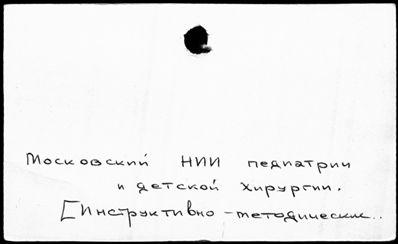 Московский НИИ педиатрии
и детской хирургии.
[Инструктивно-методические..